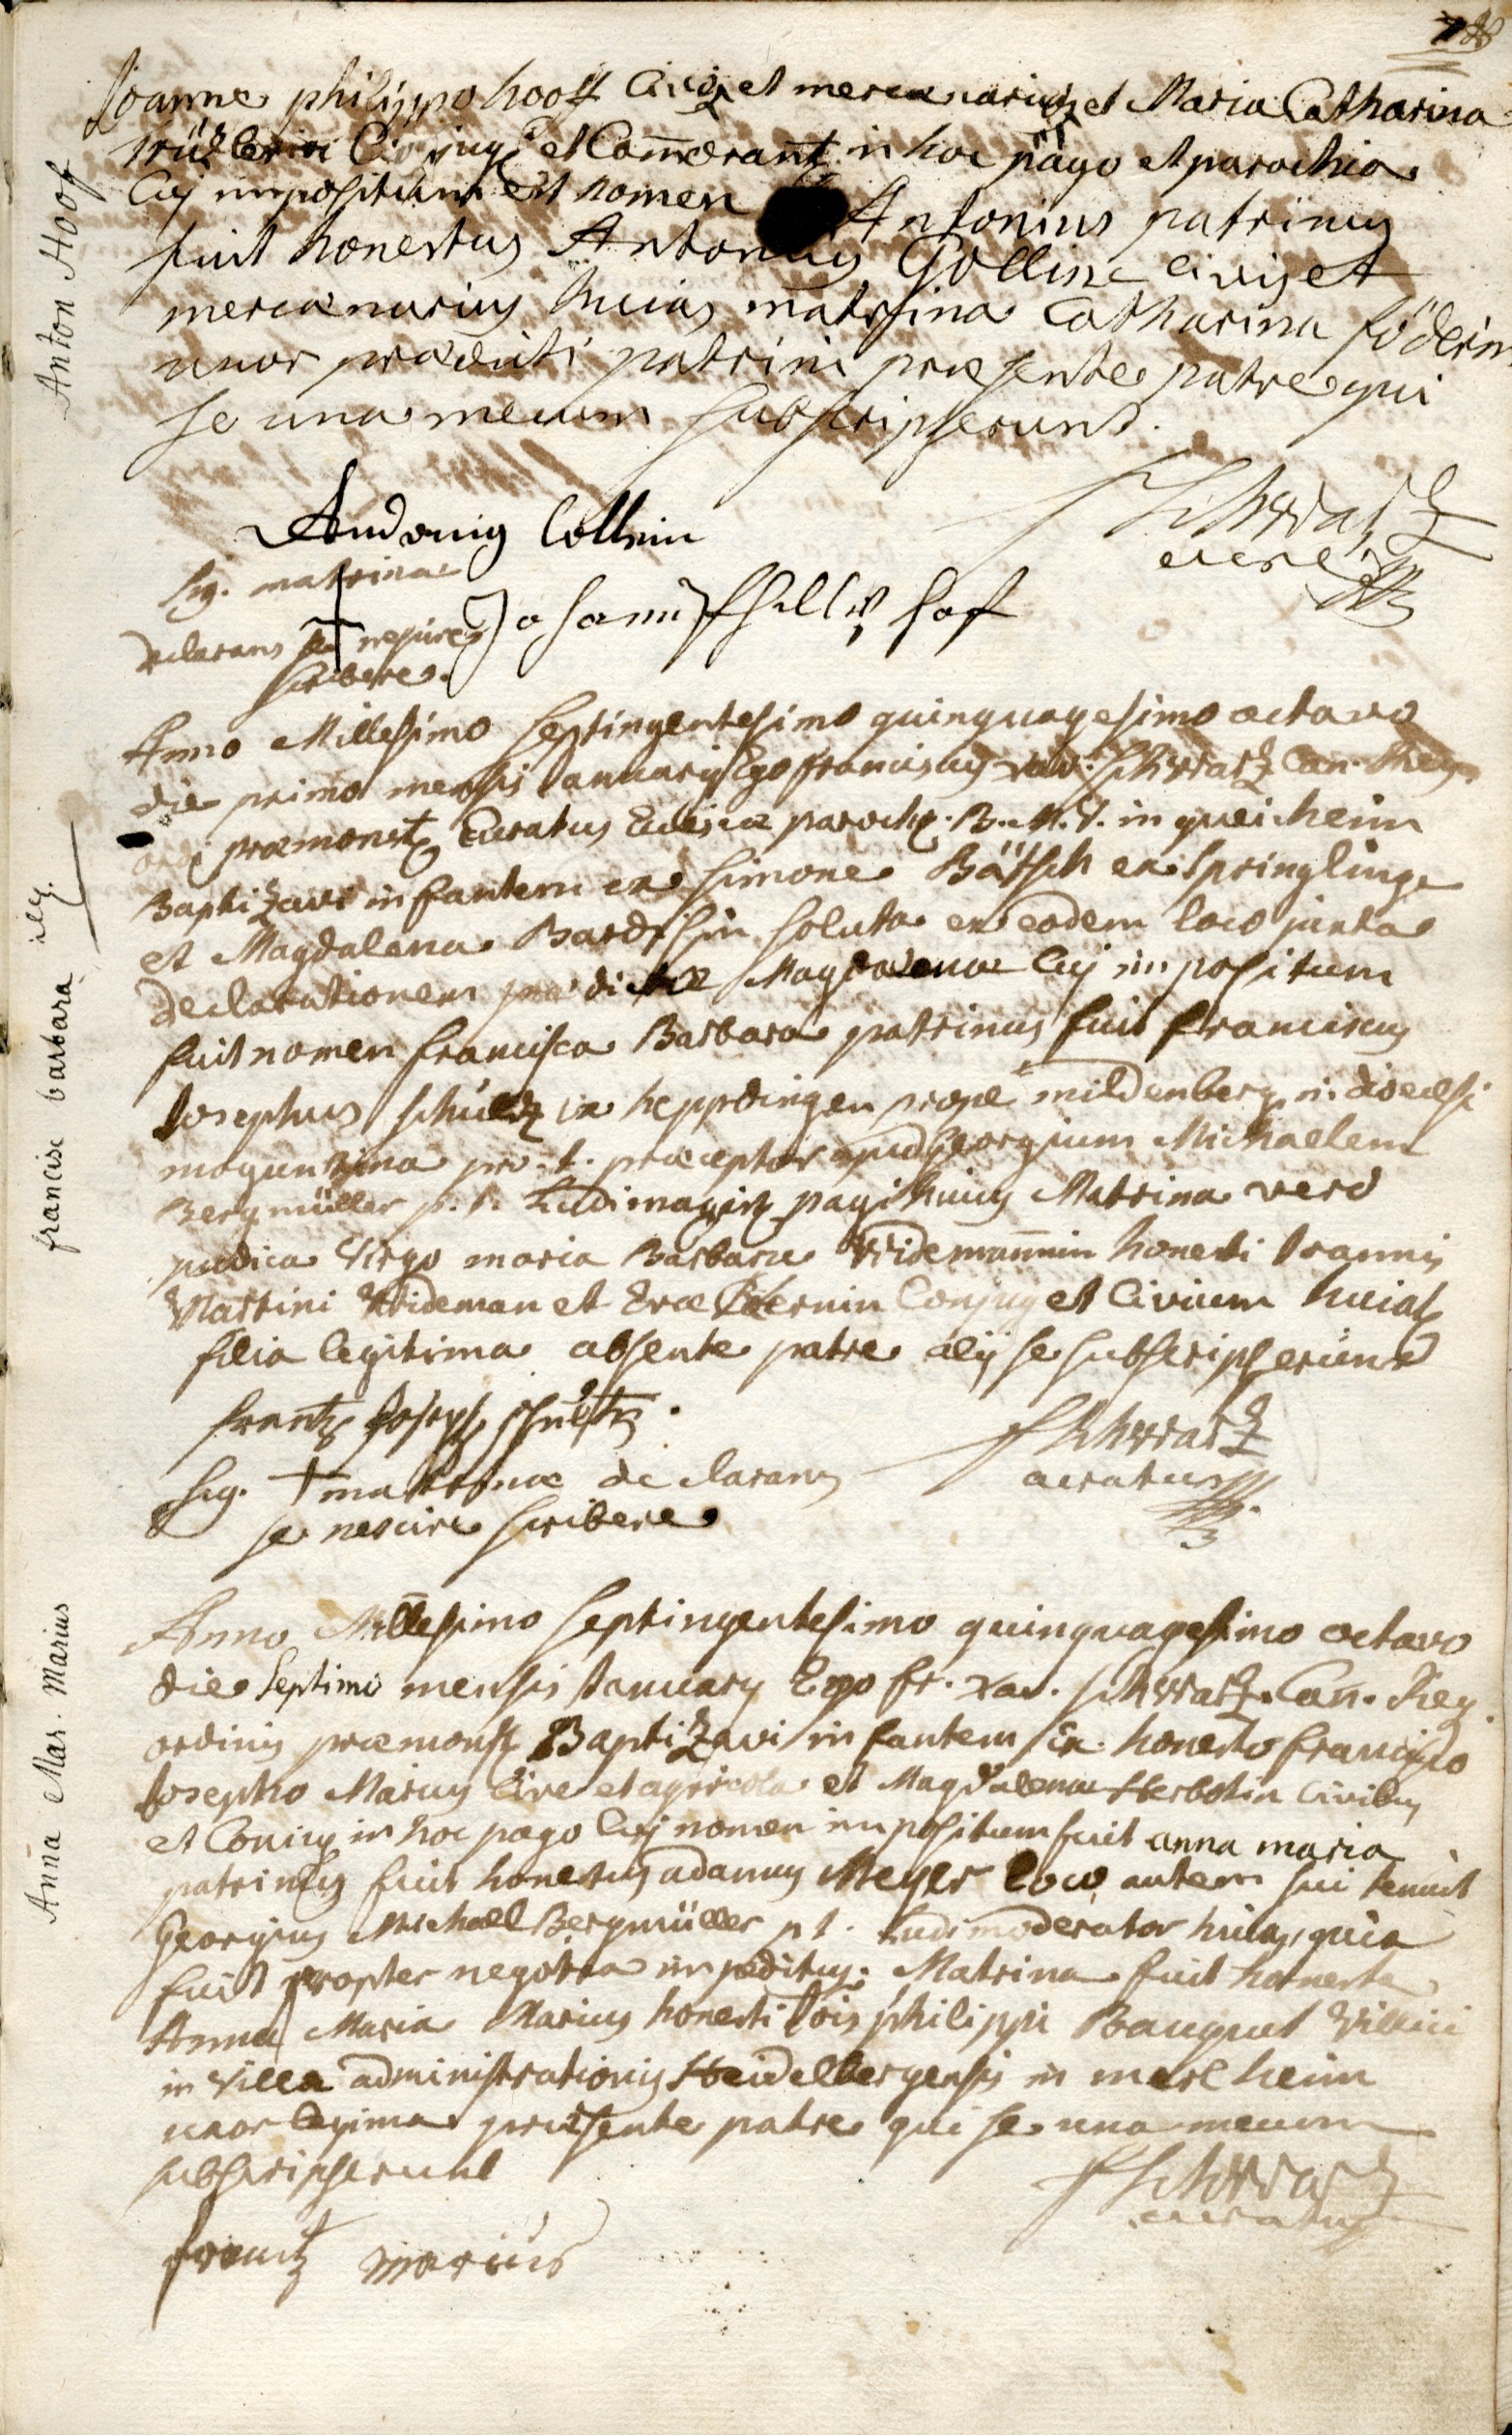 Joanne philippo hooff Civi et mercenario et Maria Catharina
Conjug et Com̄orant in hoc pago et parochia
Cuj impositum est nomen Antonius patrinus
fuit honestus Antonius Gollin civis et
mercenarius huias matrina Catharina föderin
uxor prædicti patrini præsente patre qui
se una mecum subscripserunt.
Andonig Collin
Schwartz
sig. matrinae
Johannes fhillip hof
declarans se nescire
scribere.
Anno Millesimo septingentesimo quinquagesimo octavo
die primo mensis January Ego franciscus xav. Schwartz Can. Reg.
ord præmonst Curatus Eclesiæ paroch. B. M. V. in queicheim
Baptizavi infantem ex simone Bätsch ex springlinge
et Magdalena soluta ex eodem loco juxta
declarationem prædictæ Magdalenæ Cuj impositum
fuit nomen francisca Barbara patrinus fuit franciscus
Josephus schultz ex heppdingen prope mildenberg in dioecesi
moguntina pro. t. præceptor apud georgium Michaelem
Bergmüller p. t. Ludimagist pagi huius Matrina vero
pudica virgo maria Barbara Widemannin honesti Joannis
Martini Wideman et Evæ Conjug et Civium huiat
filia legitima absente patre alij se subscripserunt
frantz Joseph schultz.
Schwartz
sig. † matrinæ declarans
curatus
se nescire scribere
Anno Millesimo septingentesimo quinquagesimo octavo
die septimi mensis January Ego fr. xav. schwartz. Can. Reg
ordinis præmonst Baptizavi infantem ex honesto francisco
Josepho Marius Cive et agricola et Magdalena Herbotin Civibus
et Coniug in hoc pago Cuj nomen impositum fuit anna maria
patrinus fuit honestus adamus Meyer loco autem sui tenuit
Georgius Michael Bergmüller p t. Ludimoderator huias, quia
fuit propter negotia impeditus. Matrina fuit honesta
Anna Maria Marius honesti Jois philippi Bauquet villici
in villa administrationis Heidelbergensis in merlheim
uxor legima præsente patre qui se una mecum
subscripserunt
Schwartz
curatus
frantz marius
Anton Hoof
francisc barbara illeg.
Anna Mar. Marius